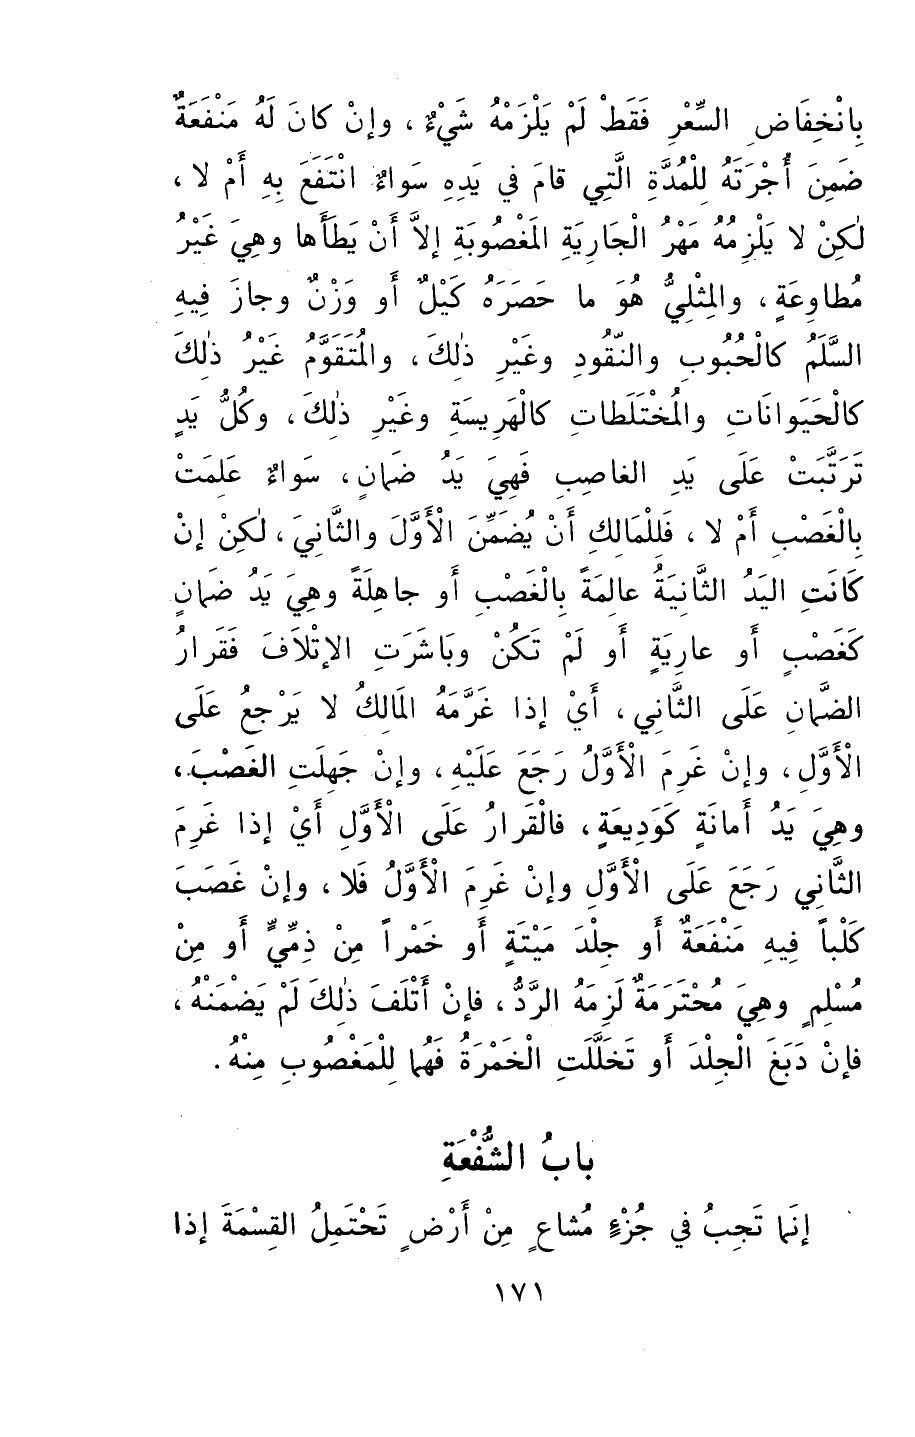 بِانْخِفَاضِ السِّعْرِ فَقَطْ لَمْ يَلْزَمْهُ شَيْءٌ ، وإنْ كانَ لَهُ مَنْفَعَةٌ
ضَمِنَ أُجْرَتَهُ لِلْمُدَّةِ الَّتِي قامَ في يَدِهِ سَواءٌ انْتَفَعَ بِهِ أَمْ لا ،
لٰكِنْ لا يَلْزِمُهُ مَهْرُ الْجارِيَةِ المَغْصُوبَةِ إلاَّ أَنْ يَطَأَها وهِيَ غَيْرُ
مُطاوِعَةٍ ، والمِثْلِيُّ هُوَ ما حَصَرَهُ كَيْلٌ أَو وَزْنٌ وجازَ فِيهِ
السَّلَمُ كالْحُبُوبِ والنُّقُودِ وغَيْرِ ذٰلِكَ ، والمُتَقَوَّمُ غَيْرُ ذٰلِكَ
كالْحَيَوانَاتِ والمُخْتَلَطاتِ كالْهَرِيسَةِ وغَيْرِ ذٰلِكَ ، وكُلُّ يَدٍ
تَرَتَّبَتْ عَلَى يَدِ الغاصِبِ فَهِيَ يَدُ ضَمانٍ ، سَواءٌ عَلِمَتْ
بِالْغَصْبِ أَمْ لا ، فَلِلْمَالِكِ أَنْ يُضَمِّنَ الْأَوَّلَ والثَّانِيَ ، لٰكِنْ إنْ
كَانَتِ اليَدُ الثَّانِيَةُ عالِمَةً بِالْغَصْبِ أَو جاهِلَةً وهِيَ يَدُ ضَمانٍ
كَغَصْبٍ أَو عارِيَةٍ أَو لَمْ تَكُنْ وبَاشَرَتِ الإتْلاَفَ فَقَرارُ
الضَّمانِ عَلَى الثَّانِي ، أَيْ إذا غَرَّمَهُ المَالِكُ لا يَرْجِعُ عَلَى
الْأَوَّلِ ، وإنْ غَرِمَ الْأَوَّلُ رَجَعَ عَلَيْهِ ، وإنْ جَهِلَتِ الغَصْبَ ،
وهِيَ يَدُ أَمانَةٍ كَوَدِيعَةٍ ، فالْقَرارُ عَلَى الْأَوَّلِ أَيْ إذا غَرِمَ
الثَّانِي رَجَعَ عَلَى الْأَوَّلِ وإنْ غَرِمَ الْأَوَّلُ فَلا ، وإنْ غَصَبَ
كَلْباً فِيهِ مَنْفَعَةٌ أَو جِلْدَ مَيْتَةٍ أَو خَمْراً مِنْ ذِمِّيٍّ أَو مِنْ
مُسْلِمٍ وهِيَ مُحْتَرَمَةٌ لَزِمَهُ الرَّدُّ ، فإنْ أَتْلَفَ ذٰلِكَ لَمْ يَضْمَنْهُ ،
فإنْ دَبَغَ الْجِلْدَ أَو تَخَلَّلَتِ الْخَمْرَةُ فَهُما لِلْمَغْصُوبِ مِنْهُ .
بابُ الشُّفْعَةِ
إنَّما تَجِبُ في جُزْءٍ مُشاعٍ مِنْ أَرْضٍ تَحْتَمِلُ القِسْمَةَ إذا
١٧١